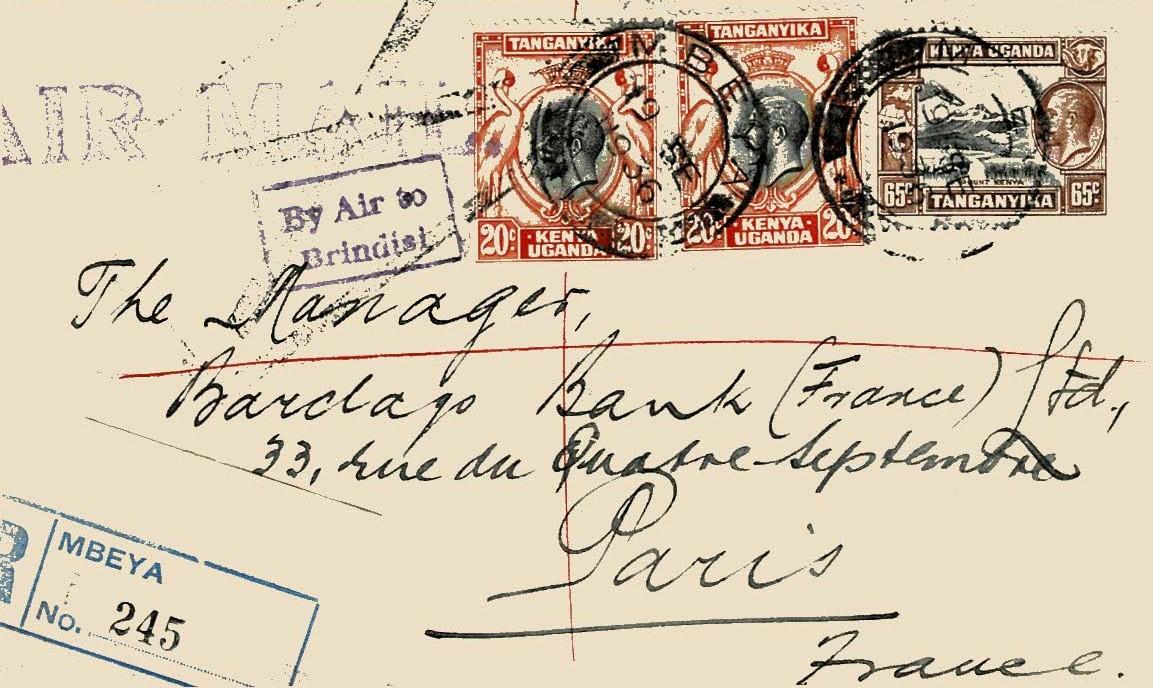 AIR MAIL.
TANGANYIKA
20c KENYA UGANDA 20c
TANGANYIKA
20c KENYA UGANDA 20c
KENYA UGANDA
MOUNT KENYA
65c TANGANYIKA 65c
MBEYA
19 SE
1936
By Air to
Brindisi
The Manager,
Barclays Bank (France) Ltd.,
33, rue du Quatre-Septembre
Paris
France.
R MBEYA
No. 245